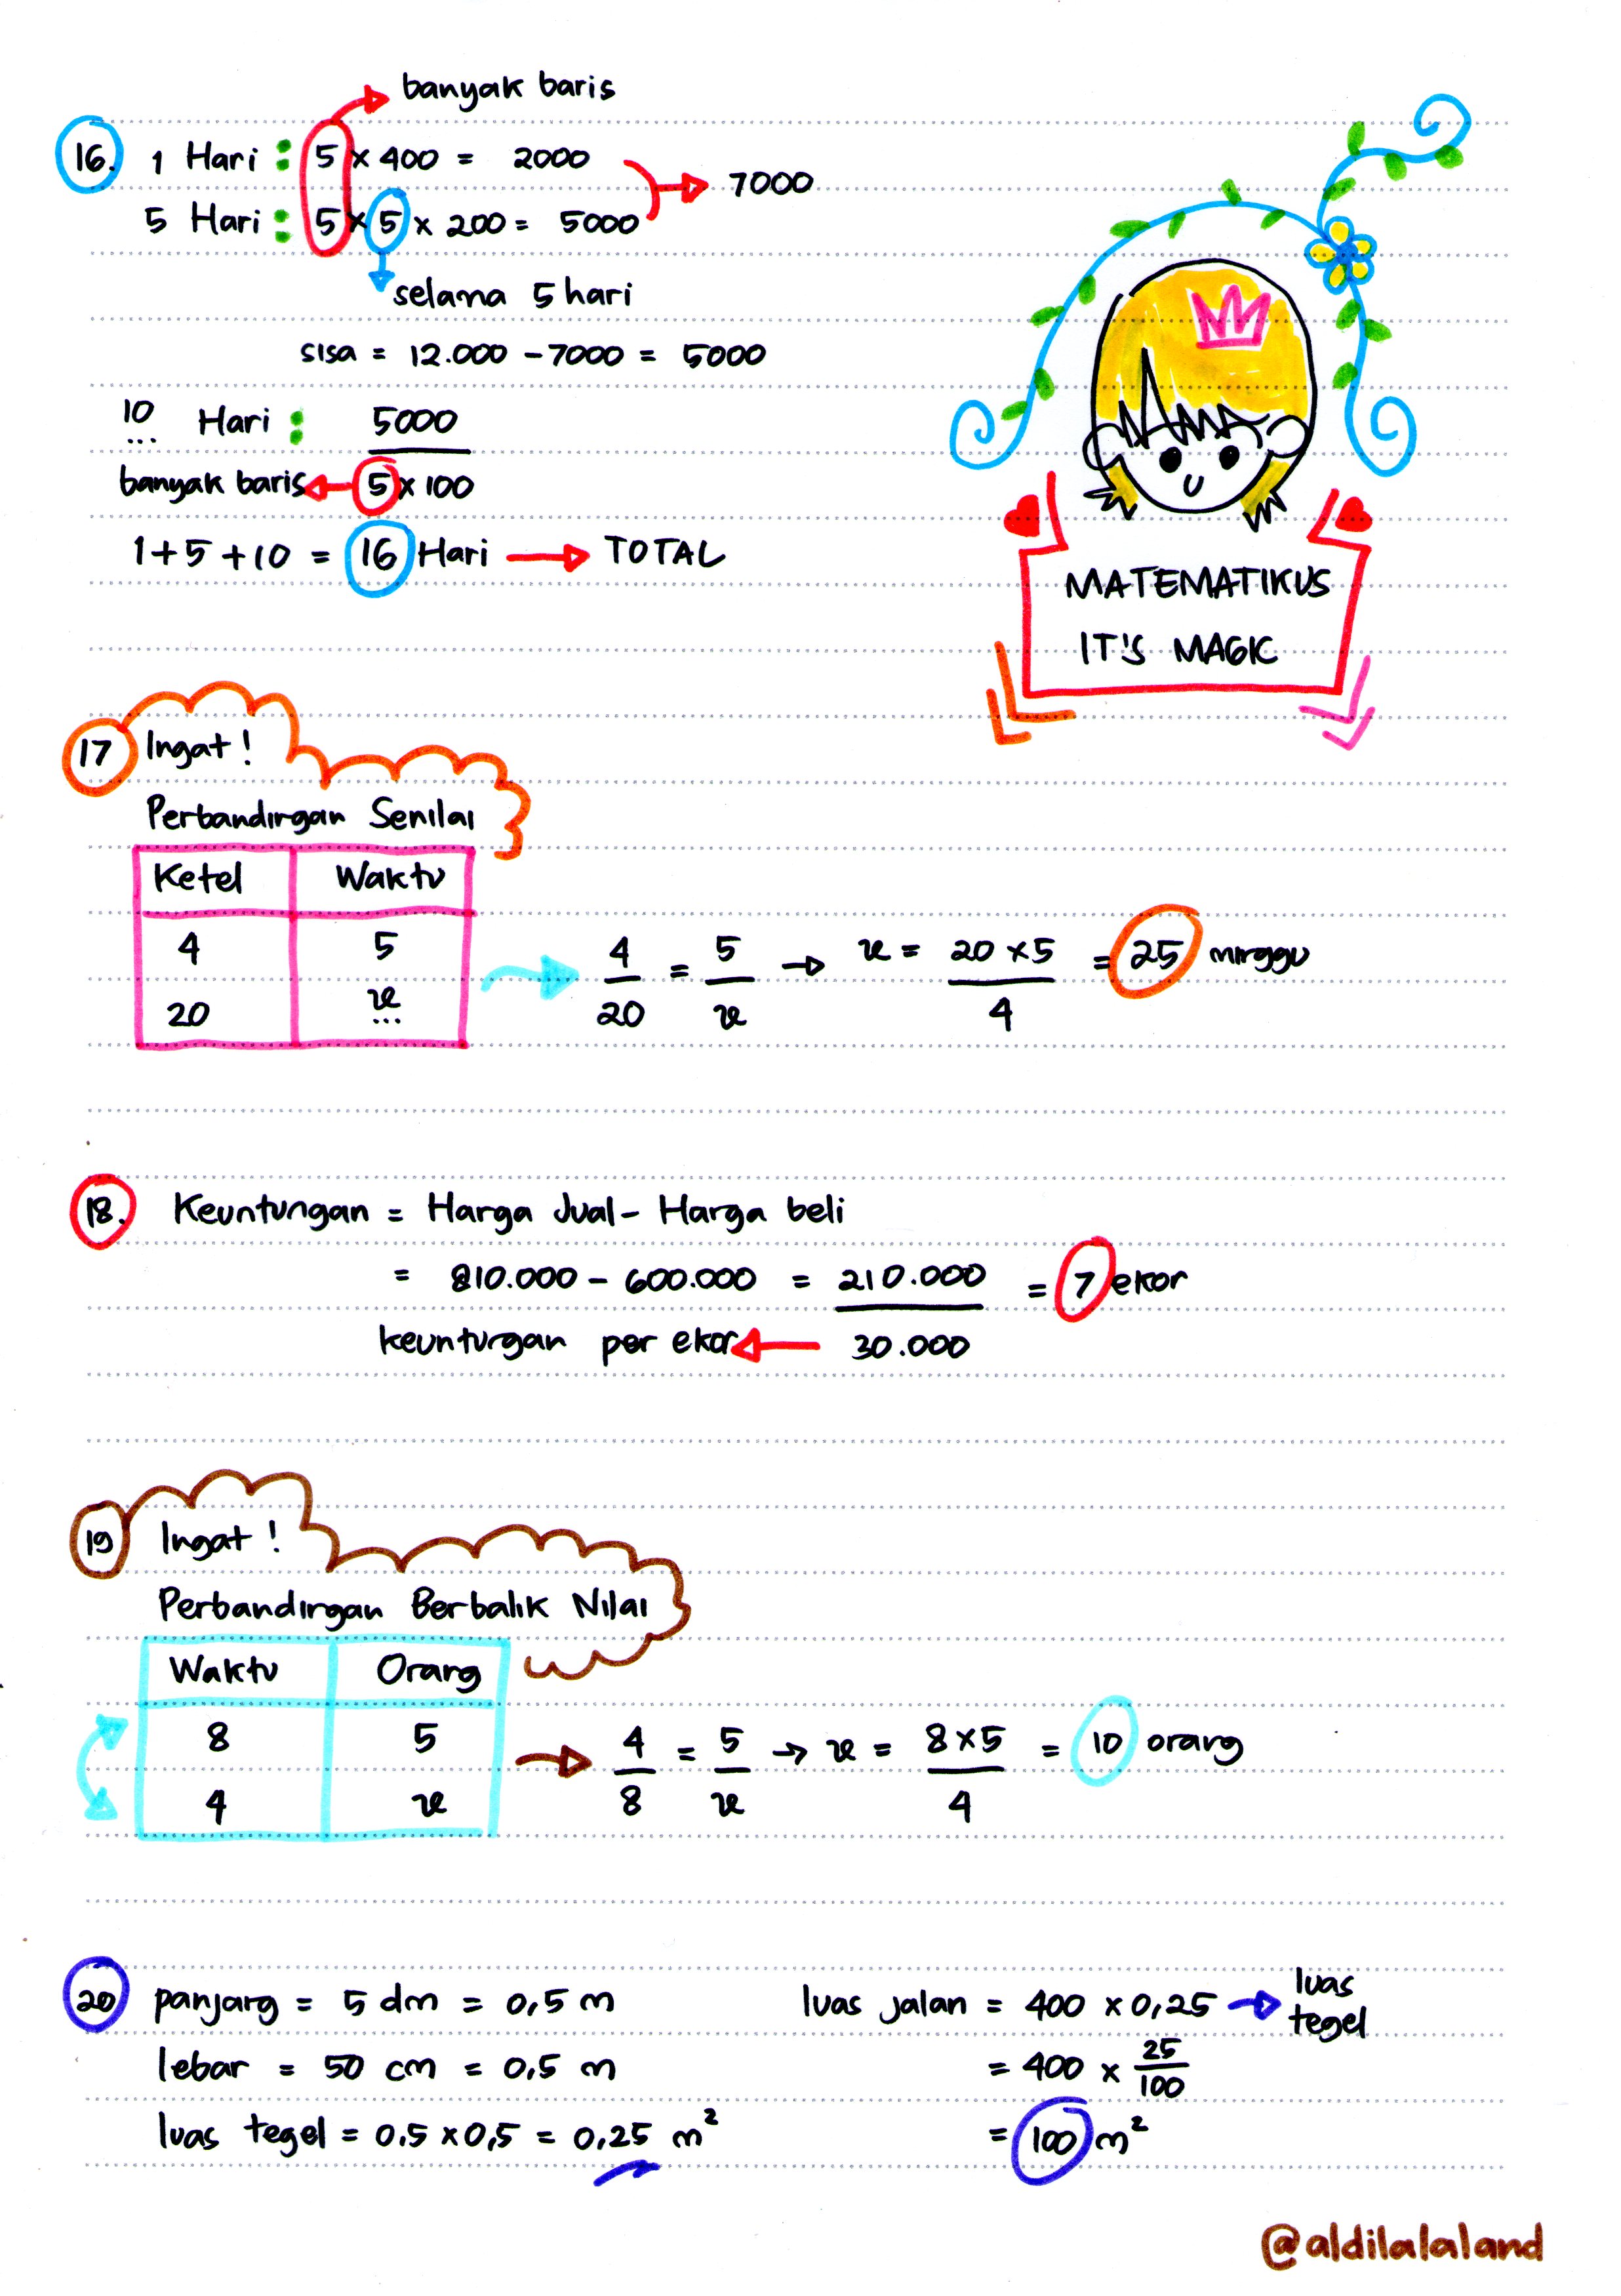 banyak baris
16. 1 Hari : 5 × 400 = 2000
→ 7000
5 Hari : 5 × 5 × 200 = 5000
selama 5 hari
sisa = 12.000 - 7000 = 5000
10 ... Hari : 5000
banyak baris ← 5 × 100
1 + 5 + 10 = 16 Hari → TOTAL
MATEMATIKUS
IT'S MAGIC
17 Ingat !
Perbandingan Senilai
Ketel Waktu
4 5
20 x ...
4/20 = 5/x → x = 20 × 5 / 4 = 25 minggu
18. Keuntungan = Harga Jual - Harga beli
= 810.000 - 600.000 = 210.000 = 7 ekor
keuntungan per ekor ← 30.000
19 Ingat !
Perbandingan Berbalik Nilai
Waktu Orang
8 5
4 x
4/8 = 5/x → x = 8 × 5 / 4 = 10 orang
20 panjang = 5 dm = 0,5 m
lebar = 50 cm = 0,5 m
luas tegel = 0.5 × 0,5 = 0,25 m²
luas jalan = 400 × 0,25 → luas tegel
= 400 × 25/100
= 100 m²
@aldilalaland